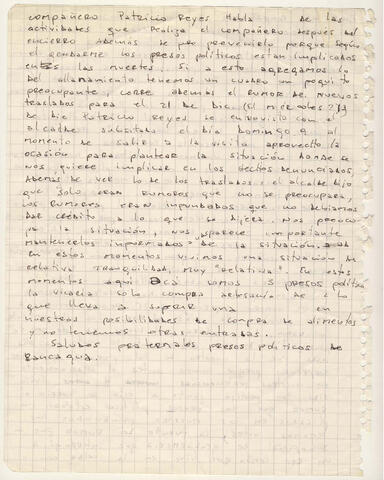 compañero Patricio Reyes habla de las
actividades que realiza el compañero después del
encierro Además se pre prevenirlo porque según
el gendarme los presos políticos estan implicados
en las muertes. Si a esto agregamos lo
del allanamiento tenemos un cuadro un poquito
preocupante, corre además el rumor de nuevos
traslados para el 21 de Dic. (El miércoles 21)
de Dic Patricio Reyes se entrevistó con el
alcalde subrstats el día Domingo 4 al
momento de salir a la visita aprovechó la
ocasión para plantear la situación donde se
nos quiere implicar en los hechos denunciados,
Además de ver lo de los traslados. el alcalde dijo
que solo eran rumores que no se preocupara,
los rumores eran infundados que no debíamos
dar crédito a lo que se dijera. Nos preocu
pa la situación, nos parece importante
mantenerlos informados de la situación.
en estos momentos vivimos una situación de
relativa tranquilidad, muy "relativa". En estos
momentos aquí acá somos 5 presos polític
la vicaria solo compra artesanía de 2 lo
que lleva a sufrir una en
nuestras posibilidades de compra de alimentos
y no tenemos otras entradas.
Saludos fraternales presos políticos de
Rancagua.